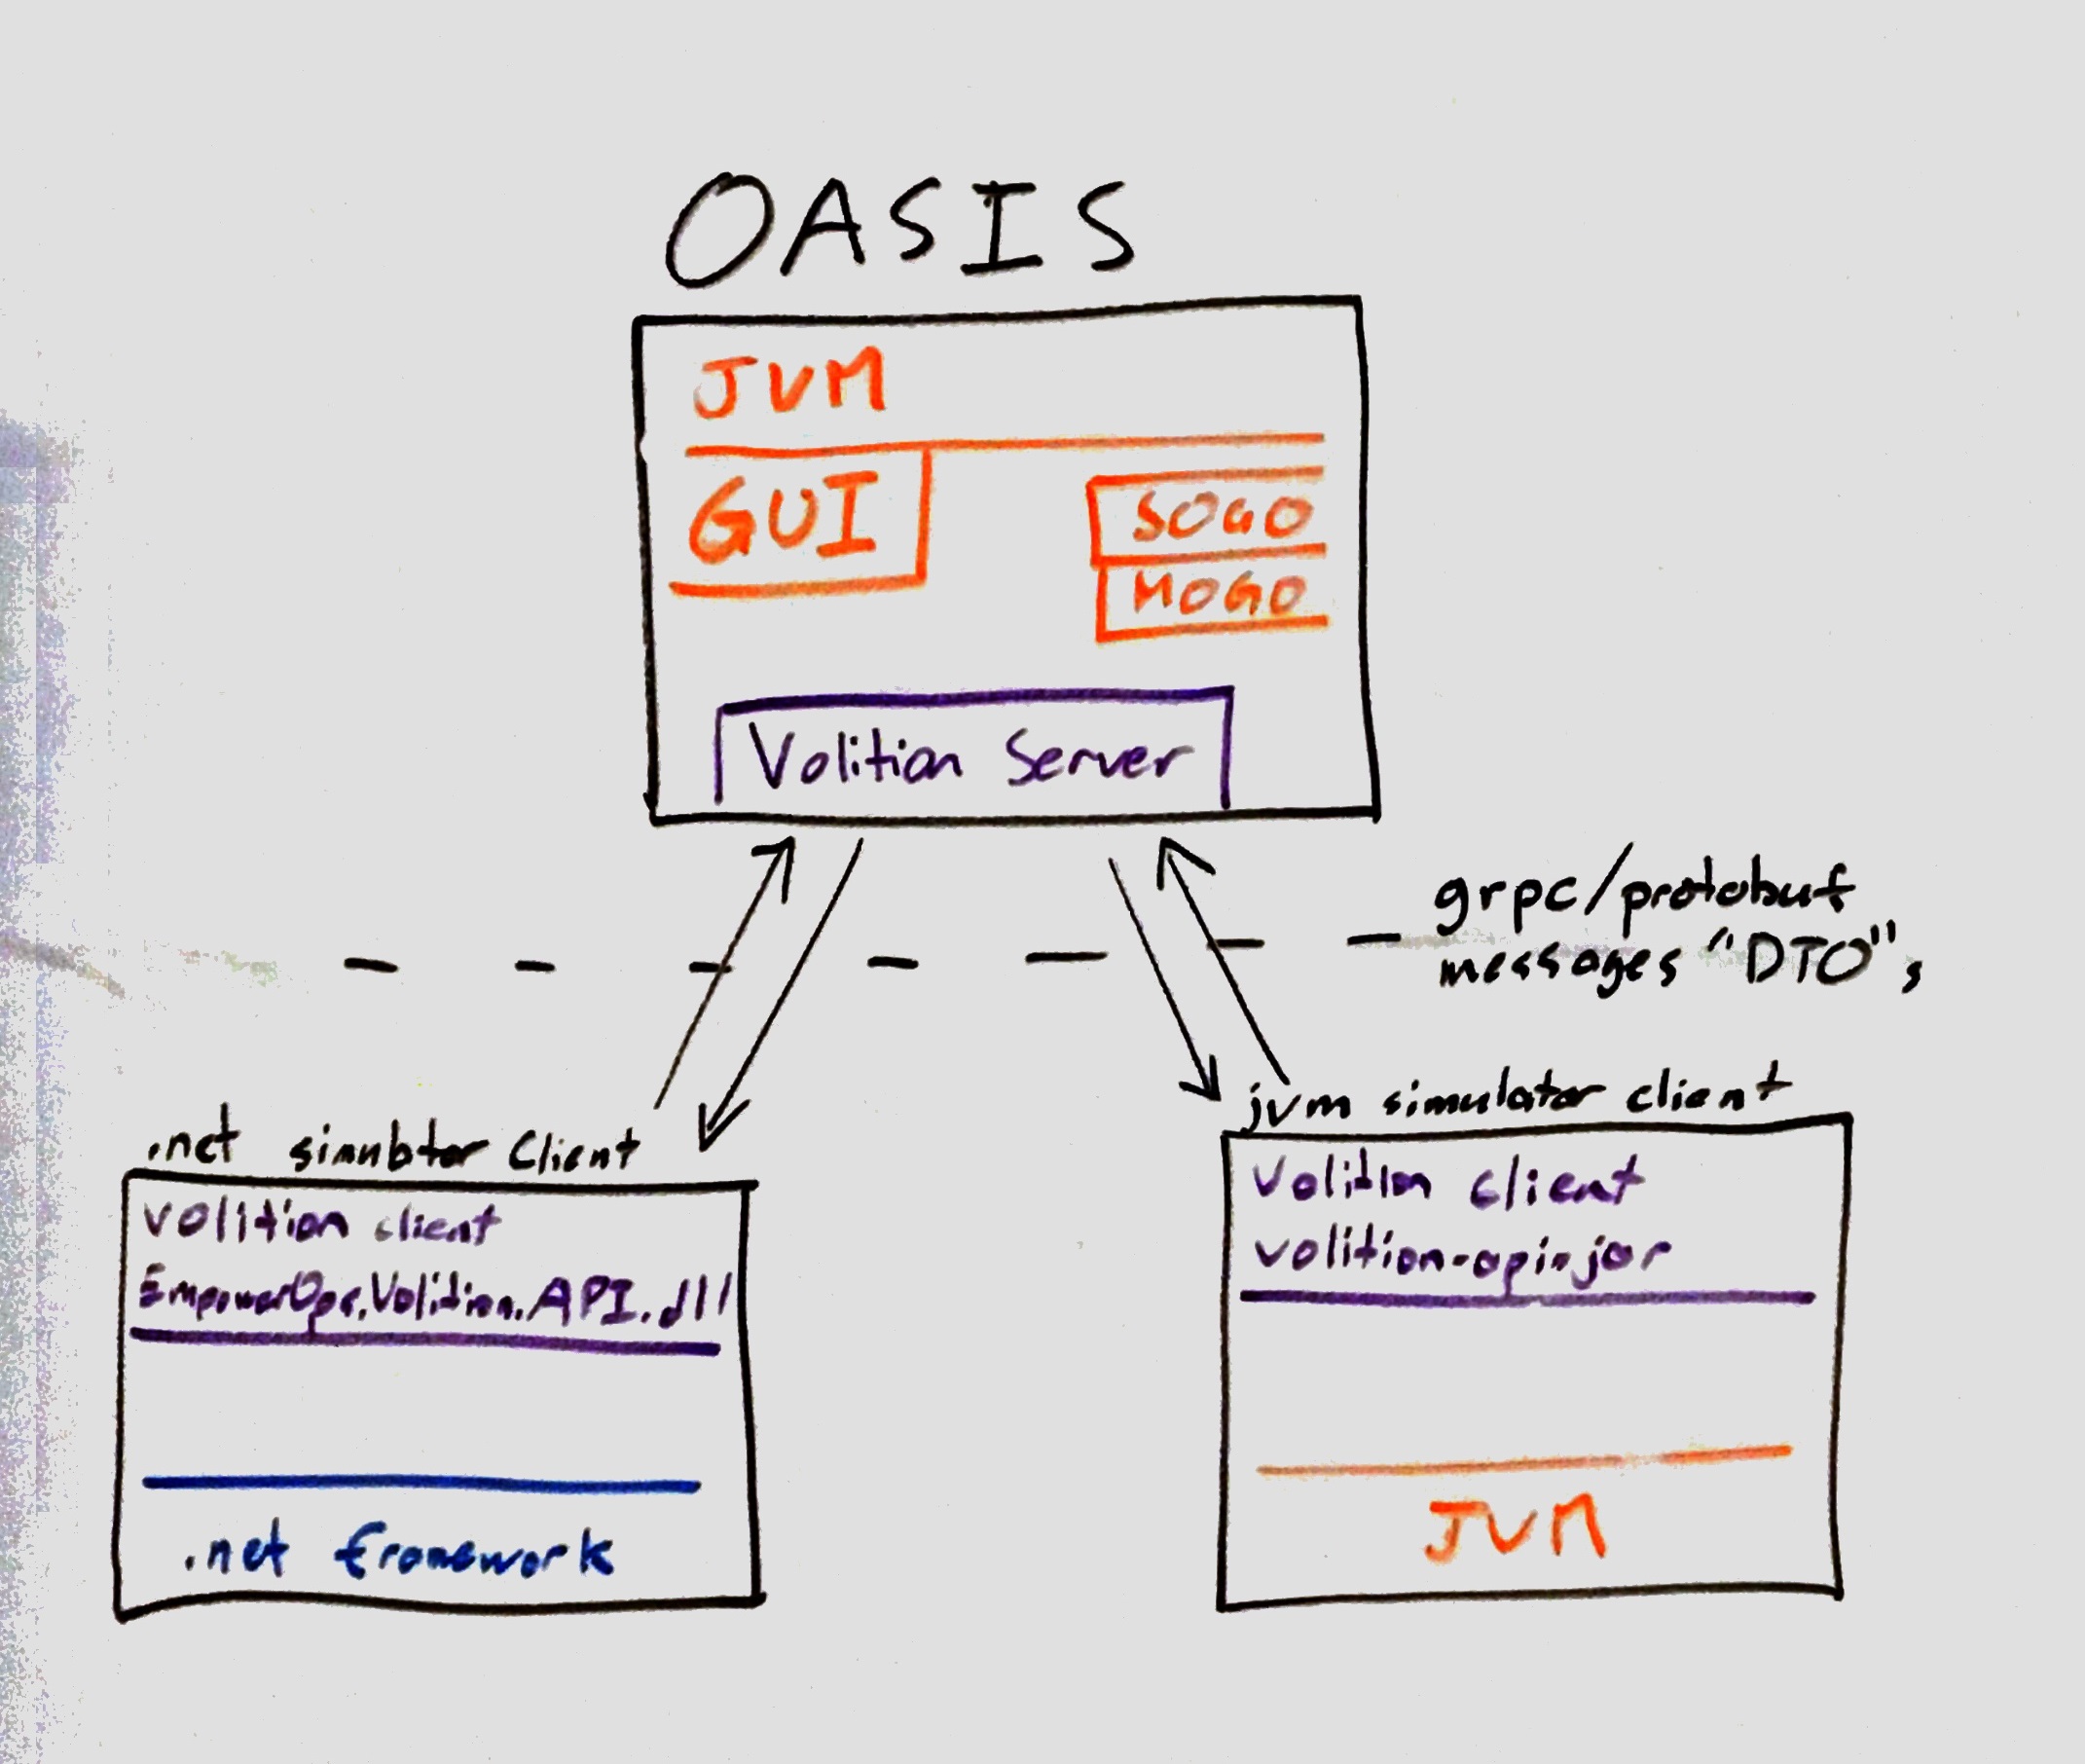 OASIS
JVM
GUI
SOGO
MOGO
Volition Server
grpc/protobuf
messages "DTO"s
.net simulator Client
volition client
EmpowerOps.Volition.API.dll
.net framework
jvm simulator client
Volition client
volition-api.jar
JVM